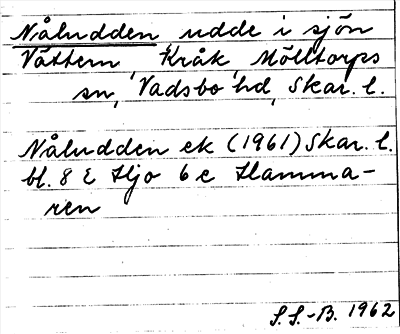 Nåludden udde i sjön
Vättern, Kråk, Mölltorps
sn, Vadsbo hd, Skar. l.
Nåludden ek (1961) Skar. l.
bl. 8 E Hjo 6 e Hamma-
ren
S.S.-B. 1962